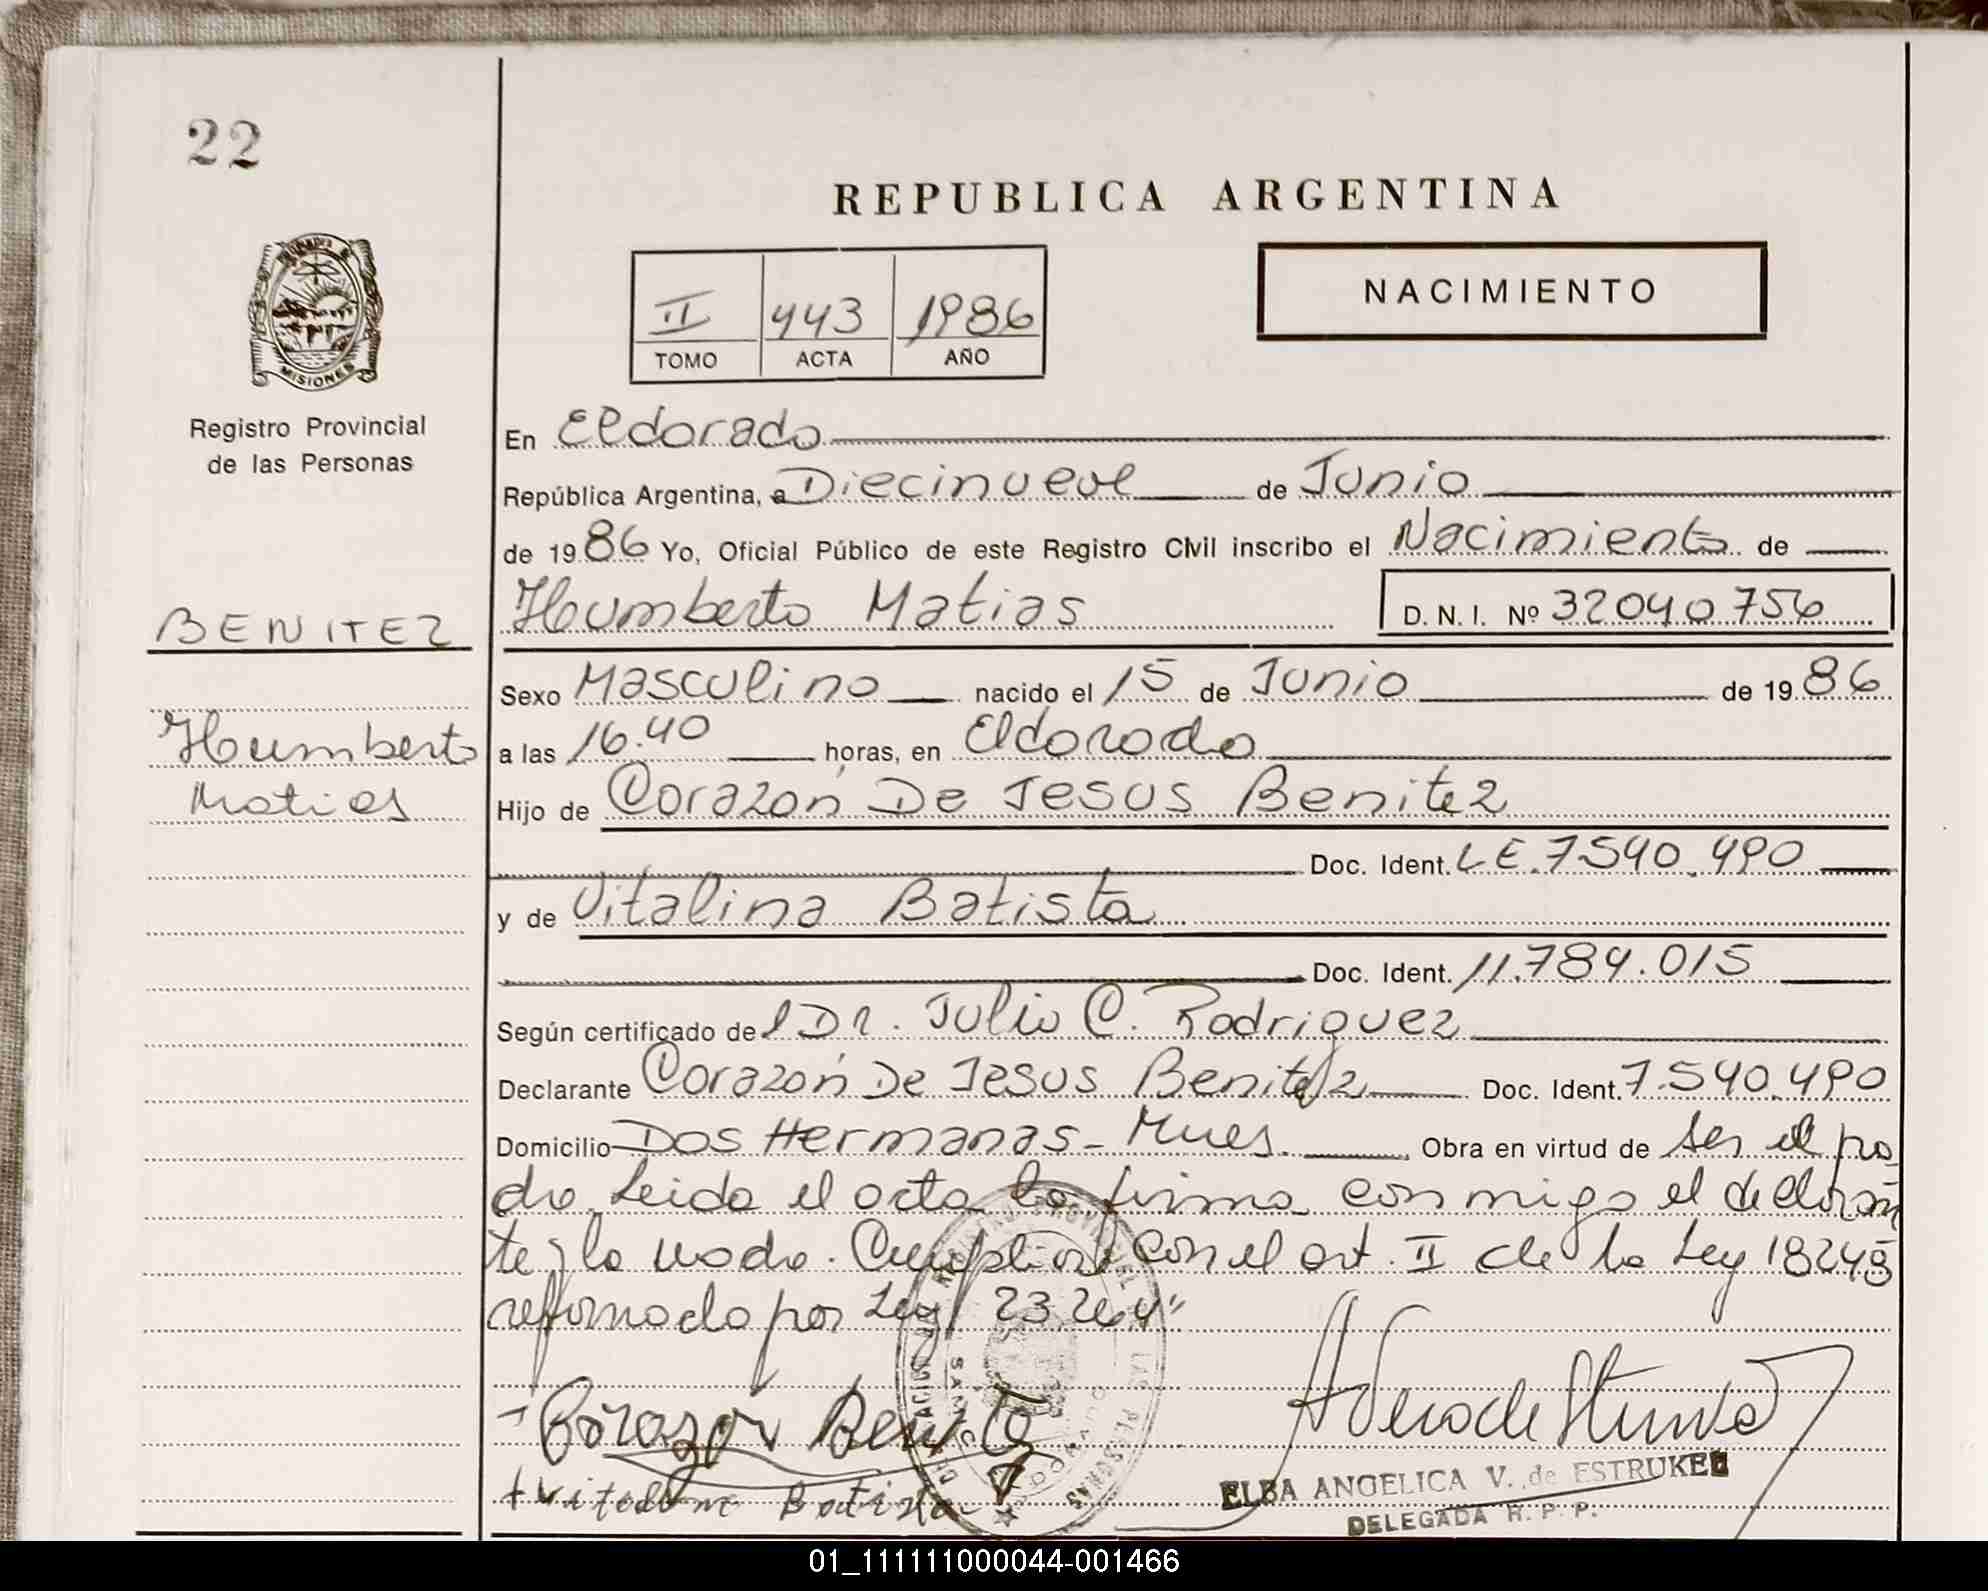 22
REPUBLICA ARGENTINA
NACIMIENTO
II 443 1986
TOMO ACTA AÑO
MISIONES
Registro Provincial
de las Personas
BENITEZ
Humberto
Matias
En Eldorado
República Argentina, a Diecinueve de Junio
de 1986 Yo, Oficial Público de este Registro Civil inscribo el Nacimiento de
Humberto Matias D.N.I. Nº 32040756
Sexo Masculino nacido el 15 de Junio de 1986
a las 16.40 horas, en Eldorado
Hijo de Corazón De Jesus Benitez
Doc. Ident. L.E. 7540.490
y de Vitalina Batista
Doc. Ident. 11.784.015
Según certificado del Dr. Julio C. Rodriguez
Declarante Corazón De Jesus Benitez Doc. Ident. 7.540.490
Domicilio Dos Hermanas - Mnes. Obra en virtud de ser el pa
dre. Leida el acta la firma conmigo el declaran
te y la madre. con el art. II de la Ley 18248
reformado por Ley 23.264"
Corazon Benitez
Vitalina Batista
ELBA ANGELICA V. de ESTRUKEL
DELEGADA R. P. P.
01_111111000044-001466